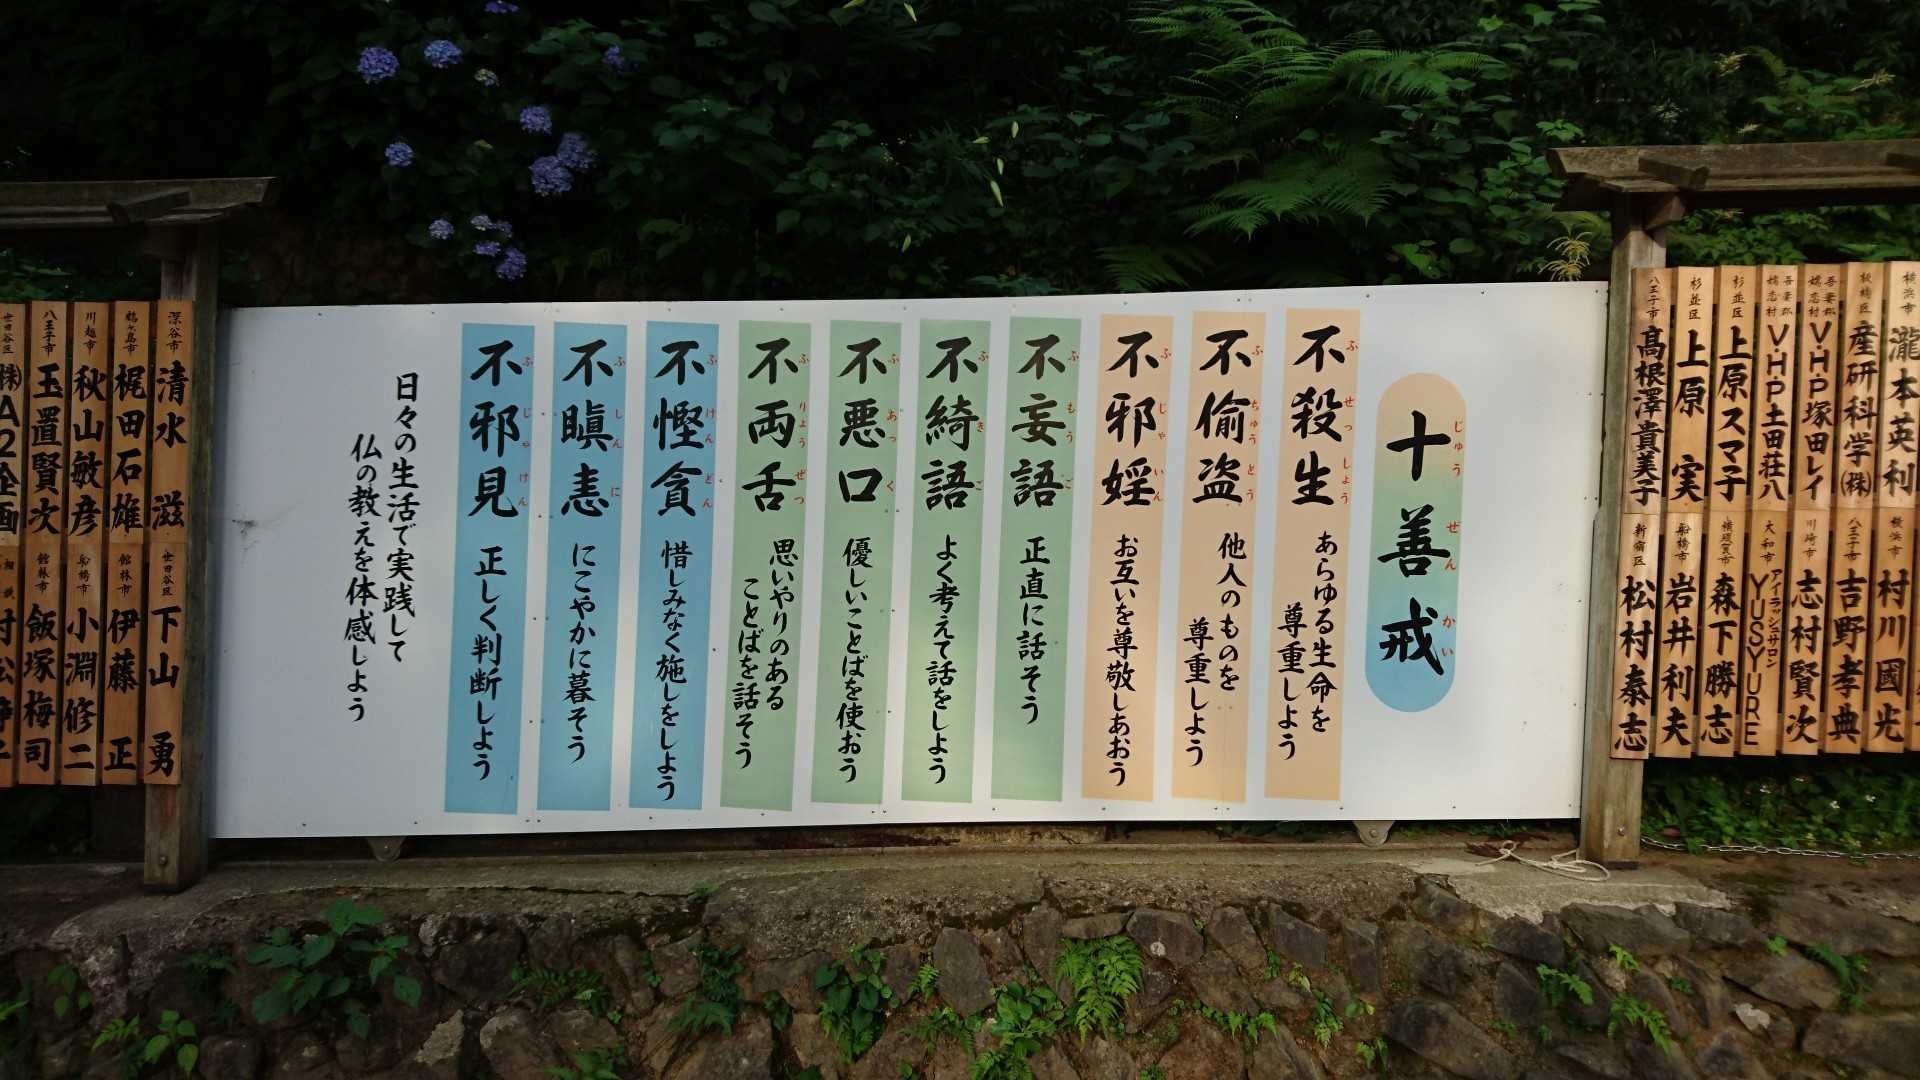 十善戒
じゅう ぜん かい
不殺生
ふ せっ しょう
あらゆる生命を
尊重しよう
不偸盗
ふ ちゅう とう
他人のものを
尊重しよう
不邪婬
ふ じゃ いん
お互いを尊敬しあおう
不妄語
ふ もう ご
正直に話そう
不綺語
ふ き ご
よく考えて話をしよう
不悪口
ふ あっ く
優しいことばを使おう
不両舌
ふ りょう ぜつ
思いやりのある
ことばを話そう
不慳貪
ふ けん どん
惜しみなく施しをしよう
不瞋恚
ふ しん に
にこやかに暮そう
不邪見
ふ じゃ けん
正しく判断しよう
日々の生活で実践して
仏の教えを体感しよう
横浜市 瀧本英利
板橋区 産研科学㈱
吾妻郡嬬恋村 VHP塚田レイ
吾妻郡嬬恋村 VHP土田荘八
杉並区 上原スマ子
杉並区 上原 実
八王子市 髙根澤貴美子
横浜市 村川國光
八王子市 吉野孝典
川崎市 志村賢次
大和市 アイラッシュサロン YUSYURE
横須賀市 森下勝志
船橋市 岩井利夫
新宿区 松村泰志
深谷市 清水 滋
鶴ヶ島市 梶田石雄
川越市 秋山敏彦
八王子市 玉置賢次
世田谷区 ㈱A2企画
世田谷区 下山 勇
館林市 伊藤 正
船橋市 小淵修二
館林市 飯塚梅司
村松